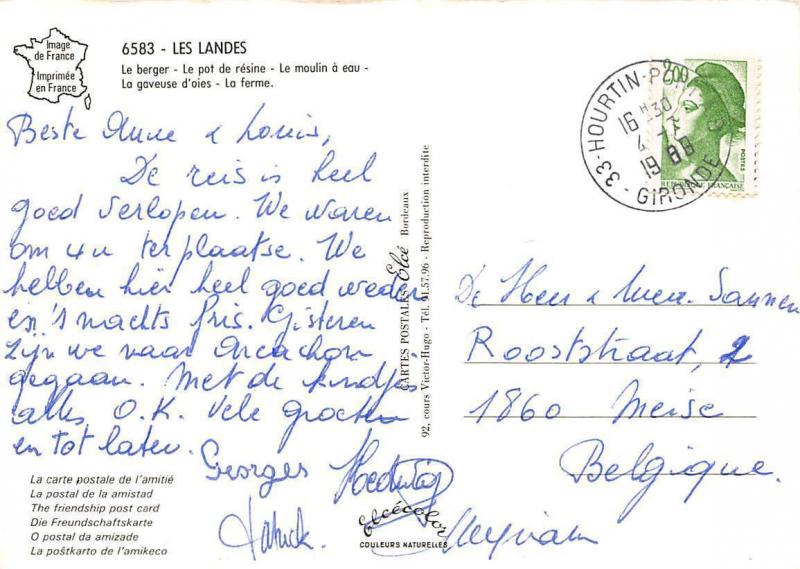 Image
de France
Imprimée
en France
6583 - LES LANDES
Le berger - Le pot de résine - Le moulin à eau -
La gaveuse d'oies - La ferme.
Beste Anne & Louis,
De reis is heel
goed verlopen. We waren
om 4u ter plaatse. We
hebben hier heel goed weder
en 's nachts fris. Gisteren
zijn we naar Arcachon
gegaan. Met de kindjes
alles O.K. Vele groeten
en tot later.
Georges
Patrick.
Myriam
La carte postale de l'amitié
La postal de la amistad
The friendship post card
Die Freundschaftskarte
O postal da amizade
La poŝtkarto de l'amikeco
92, cours Victor-Hugo - Tél. 91.57.96 - Reproduction interdite
CARTES POSTALES Elcé Bordeaux
elcécolor
COULEURS NATURELLES
33-HOURTIN-
16 H 30
4 -
1988
GIRONDE
2,00
POSTES
REPUBLIQUE FRANÇAISE
De Heer & Mevr. Sannen
Rooststraat, 2
1860 Meise
Belgique.